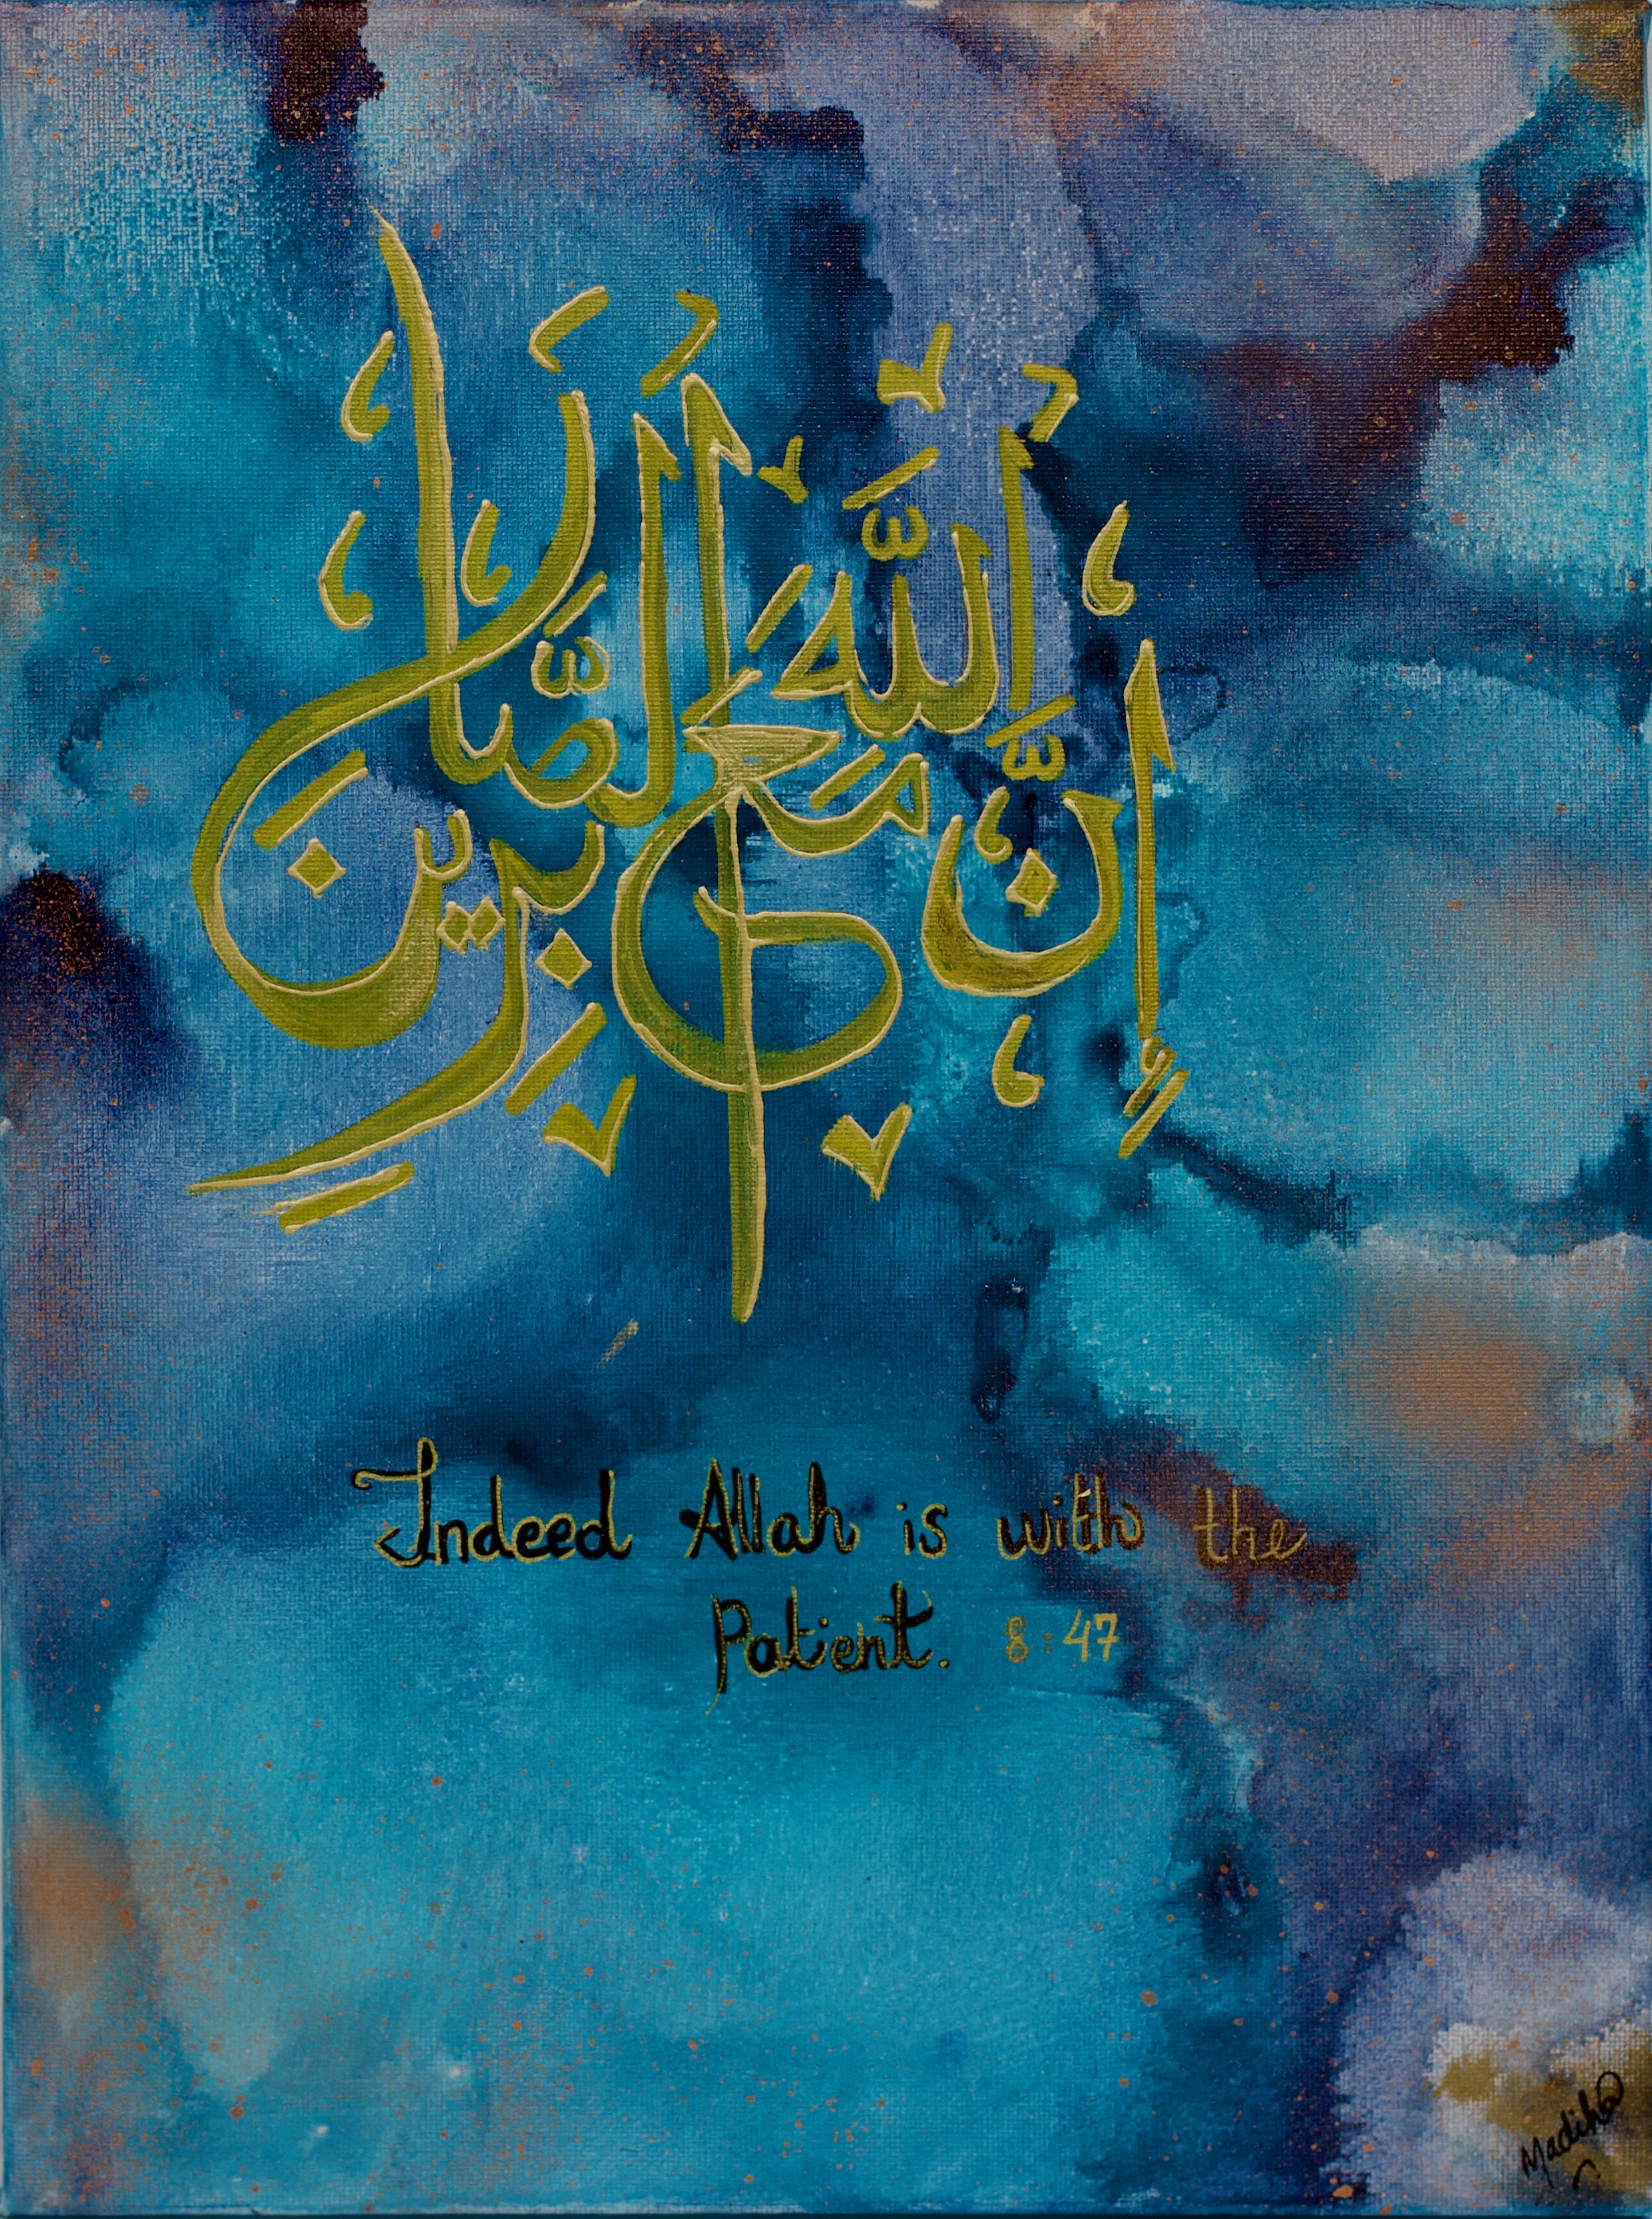 إِنَّ اللَّهَ مَعَ الصَّابِرِينَ
Indeed Allah is with the
Patient. 8:47
Madiha